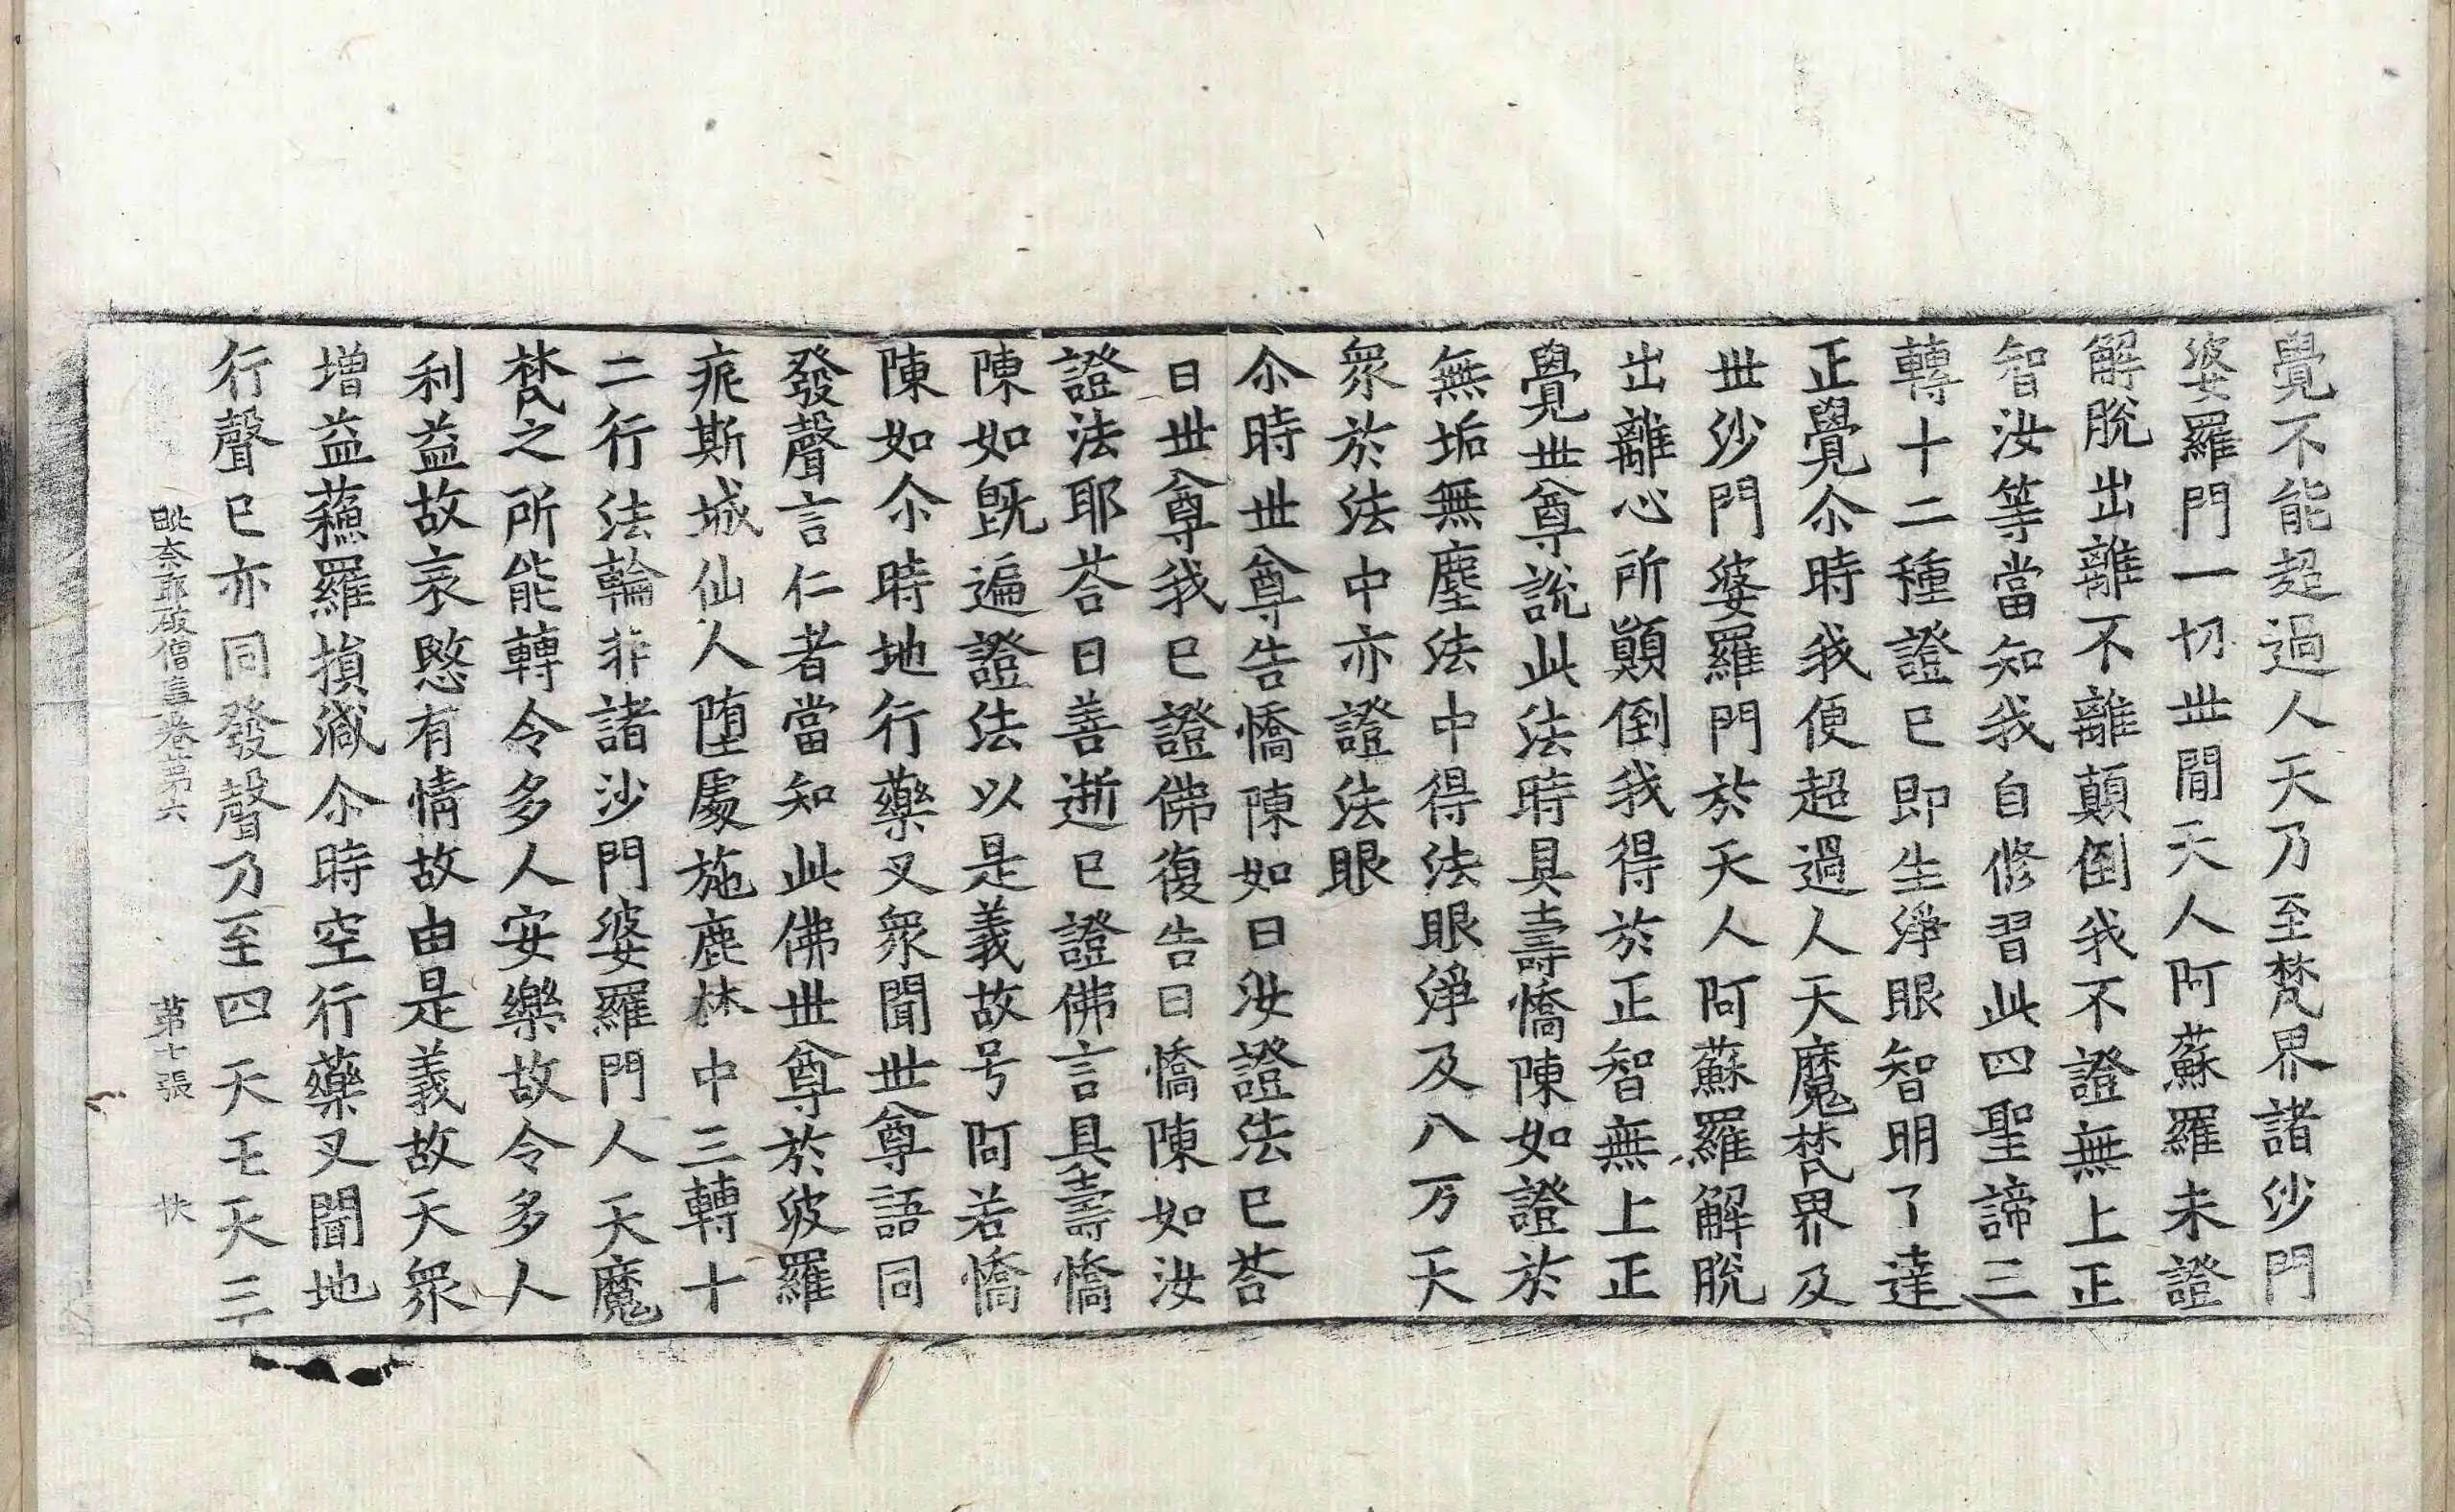 覺不能超過人天乃至梵界諸沙門
婆羅門一切世閒天人阿蘇羅未證
解脫出離不離顛倒我不證無上正
智汝等當知我自修習此四聖諦三
轉十二種證已即生淨眼智明了達
正覺尒時我便超過人天魔梵界及
世沙門婆羅門於天人阿蘇羅解脫
出離心所顛倒我得於正智無上正
覺世尊說此法時具壽憍陳如證於
無垢無塵法中得法眼淨及八万天
衆於法中亦證法眼
尒時世尊告憍陳如曰汝證法已荅
曰世尊我已證佛復告曰憍陳如汝
證法耶荅曰善逝已證佛言具壽憍
陳如旣遍證法以是義故号阿若憍
陳如尒時地行藥叉衆聞世尊語同
發聲言仁者當知此佛世尊於波羅
痆斯城仙人墮處施鹿林中三轉十
二行法輪非諸沙門婆羅門人天魔
梵之所能轉令多人安樂故令多人
利益故哀愍有情故由是義故天衆
增益蘓羅損減尒時空行藥叉聞地
行聲已亦同發聲乃至四天王天三
毗奈耶破僧事卷第六 第七張